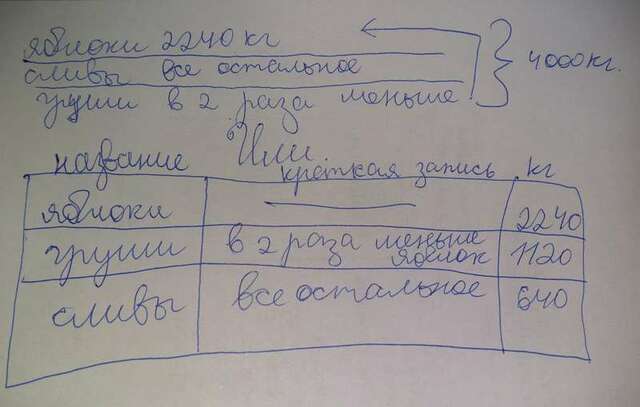 яблоки 2240 кг
сливы все остальное
груши в 2 раза меньше
4000 кг.
Или
название краткая запись кг
яблоки — 2240
груши в 2 раза меньше яблок 1120
сливы все остальное 640